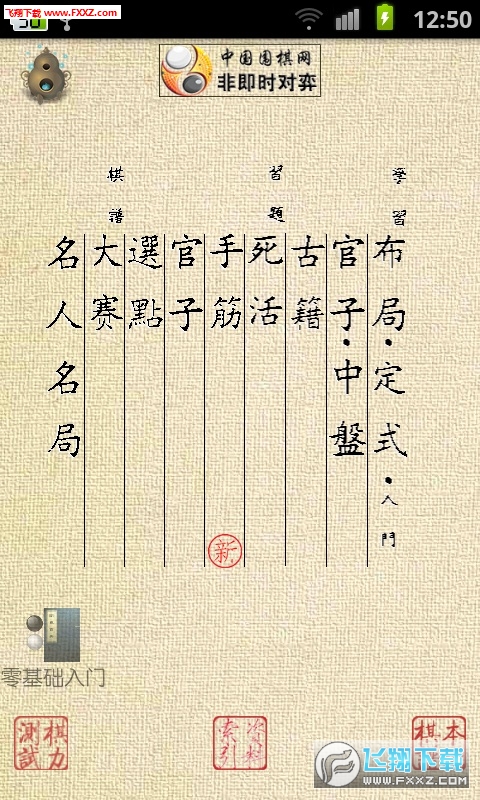 飞翔下载
www.FXXZ.com
12:50
中国围棋网
非即时对弈
學習
布局·定式·入門
官子·中盤
古籍
習題
死活
手筋
新
官子
選點
棋譜
大赛
名人名局
零基础入门
棋力測試
資料索引
棋本
飞翔下载
WWW.FXXZ.COM